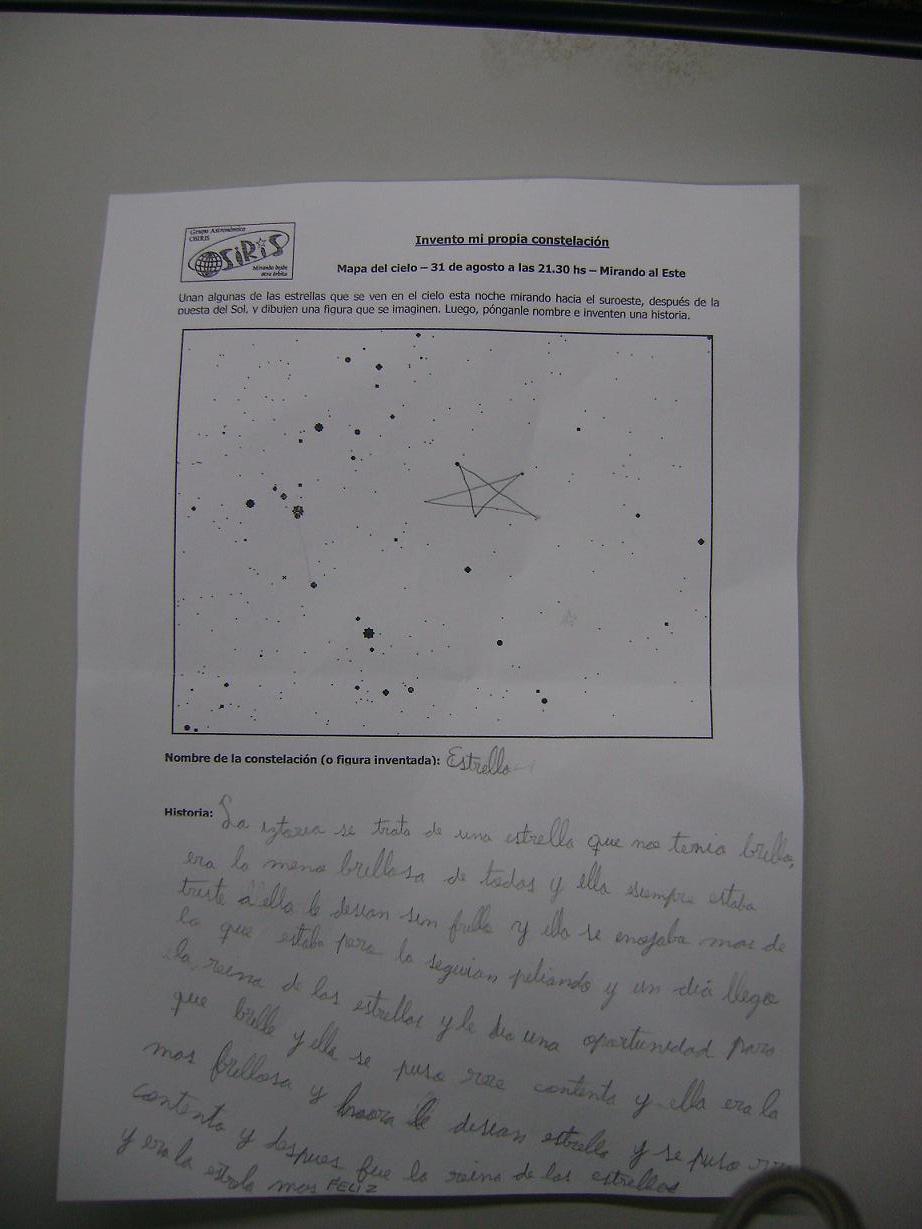 Grupo Astronómico
OSIRIS
OSIRIS
Mirando desde
otra órbita
Invento mi propia constelación
Mapa del cielo – 31 de agosto a las 21.30 hs – Mirando al Este
Unan algunas de las estrellas que se ven en el cielo esta noche mirando hacia el suroeste, después de la
puesta del Sol, y dibujen una figura que se imaginen. Luego, pónganle nombre e inventen una historia.
Nombre de la constelación (o figura inventada): Estrella
Historia: La iztoria se trata de una estrella que no tenia brillo,
era la meno brillosa de todas y ella siempre estaba
triste a ella le desian sin brillo y ella se enojaba mas de
lo que estaba pero la seguian peliando y un dia llego
la reina de las estrellas y le dio una oportunidad para
que brille y ella se puso rre contenta y ella era la
mas brillosa y haora le desian estrella y se puso rre
contenta y despues fue la reina de las estrellas
y era la estrela mas FELIZ